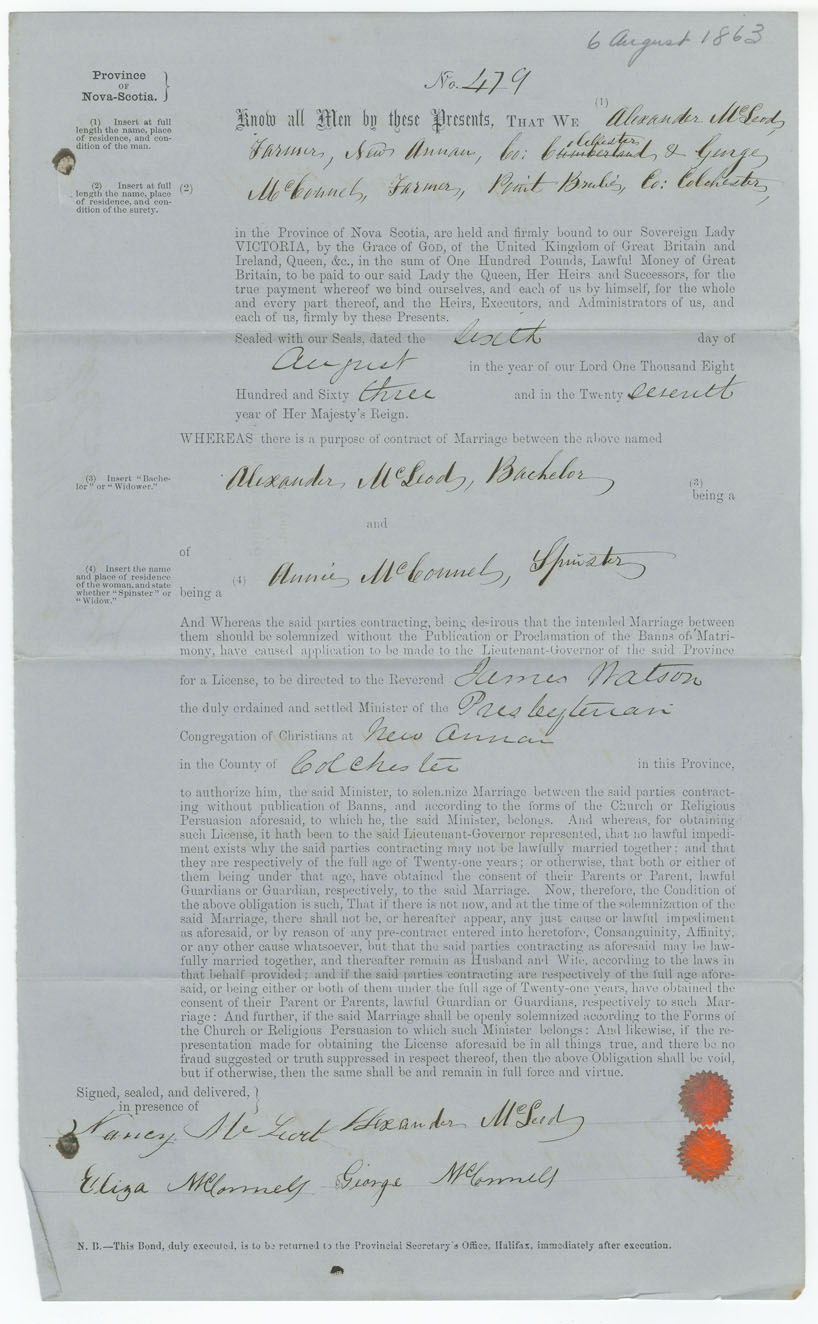 6 August 1863
Province
OF
Nova-Scotia.
No. 479
(1) Insert at full
length the name, place
of residence, and con-
dition of the man.
Know all Men by these Presents, THAT WE (1) Alexander McLeod,
Farmer, New Annan, Co: Cumberland olchester & George
(2) Insert at full
length the name, place
of residence, and con-
dition of the surety.
(2) McConnel, Farmer, Point Brulie, Co: Colchester,
in the Province of Nova Scotia, are held and firmly bound to our Sovereign Lady
VICTORIA, by the Grace of GOD, of the United Kingdom of Great Britain and
Ireland, Queen, &c., in the sum of One Hundred Pounds, Lawful Money of Great
Britain, to be paid to our said Lady the Queen, Her Heirs and Successors, for the
true payment whereof we bind ourselves, and each of us by himself, for the whole
and every part thereof, and the Heirs, Executors, and Administrators of us, and
each of us, firmly by these Presents.
Sealed with our Seals, dated the sixth day of
August in the year of our Lord One Thousand Eight
Hundred and Sixty three and in the Twenty seventh
year of Her Majesty's Reign.
WHEREAS there is a purpose of contract of Marriage between the above named
(3) Insert "Bache-
lor" or "Widower."
Alexander McLeod, Bachelor (3)
being a
and
of
(4) Insert the name
and place of residence
of the woman, and state
whether "Spinster" or
"Widow."
(4) Annie McConnel, Spinster
being a
And Whereas the said parties contracting, being desirous that the intended Marriage between
them should be solemnized without the Publication or Proclamation of the Banns of Matri-
mony, have caused application to be made to the Lieutenant-Governor of the said Province
for a License, to be directed to the Reverend James Watson
the duly ordained and settled Minister of the Presbyterian
Congregation of Christians at New Annan
in the County of Colchester in this Province,
to authorize him, the said Minister, to solemnize Marriage between the said parties contract-
ing without publication of Banns, and according to the forms of the Church or Religious
Persuasion aforesaid, to which he, the said Minister, belongs. And whereas, for obtaining
such License, it hath been to the said Lieutenant-Governor represented, that no lawful impedi-
ment exists why the said parties contracting may not be lawfully married together; and that
they are respectively of the full age of Twenty-one years; or otherwise, that both or either of
them being under that age, have obtained the consent of their Parents or Parent, lawful
Guardians or Guardian, respectively, to the said Marriage. Now, therefore, the Condition of
the above obligation is such, That if there is not now, and at the time of the solemnization of the
said Marriage, there shall not be, or hereafter appear, any just cause or lawful impediment
as aforesaid, or by reason of any pre-contract entered into heretofore, Consanguinity, Affinity,
or any other cause whatsoever, but that the said parties contracting as aforesaid may be law-
fully married together, and thereafter remain as Husband and Wife, according to the laws in
that behalf provided; and if the said parties contracting are respectively of the full age afore-
said, or being either or both of them under the full age of Twenty-one years, have obtained the
consent of their Parent or Parents, lawful Guardian or Guardians, respectively to such Mar-
riage: And further, if the said Marriage shall be openly solemnized according to the Forms of
the Church or Religious Persuasion to which such Minister belongs: And likewise, if the re-
presentation made for obtaining the License aforesaid be in all things true, and there be no
fraud suggested or truth suppressed in respect thereof, then the above Obligation shall be void,
but if otherwise, then the same shall be and remain in full force and virtue.
Signed, sealed, and delivered,
in presence of
Nancy Mc Alexander McLeod
Eliza McConnell George McConnell
N. B.—This Bond, duly executed, is to be returned to the Provincial Secretary's Office, Halifax, immediately after execution.